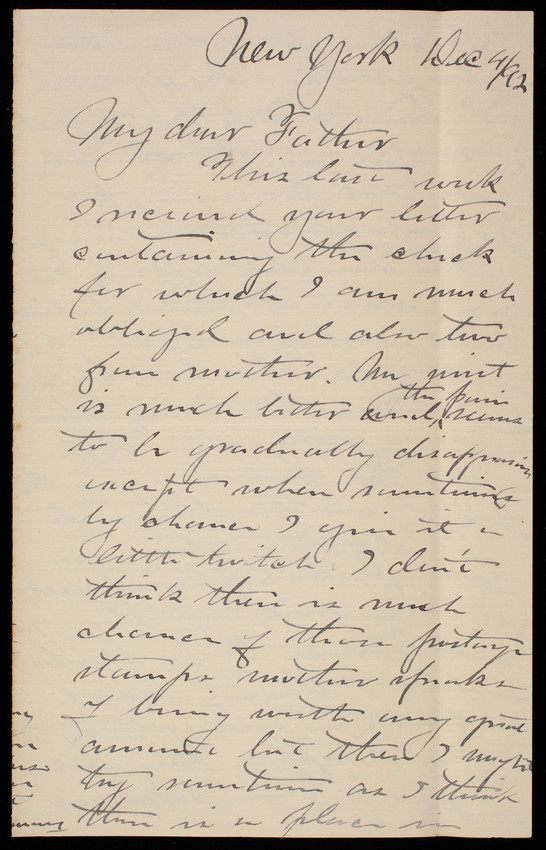 New York Dec 4/92
My dear Father
This last week
I received your letter
containing the check
for which I am much
obliged and also two
from mother. My joint
is much better and the pain seems
to be gradually disappearing
except when sometimes
by chance I give it a
little twitch. I don't
think there is much
chance of those postage
stamps mother speaks
of being worth any great
amount but then I might
try sometime as I think
there is a place in